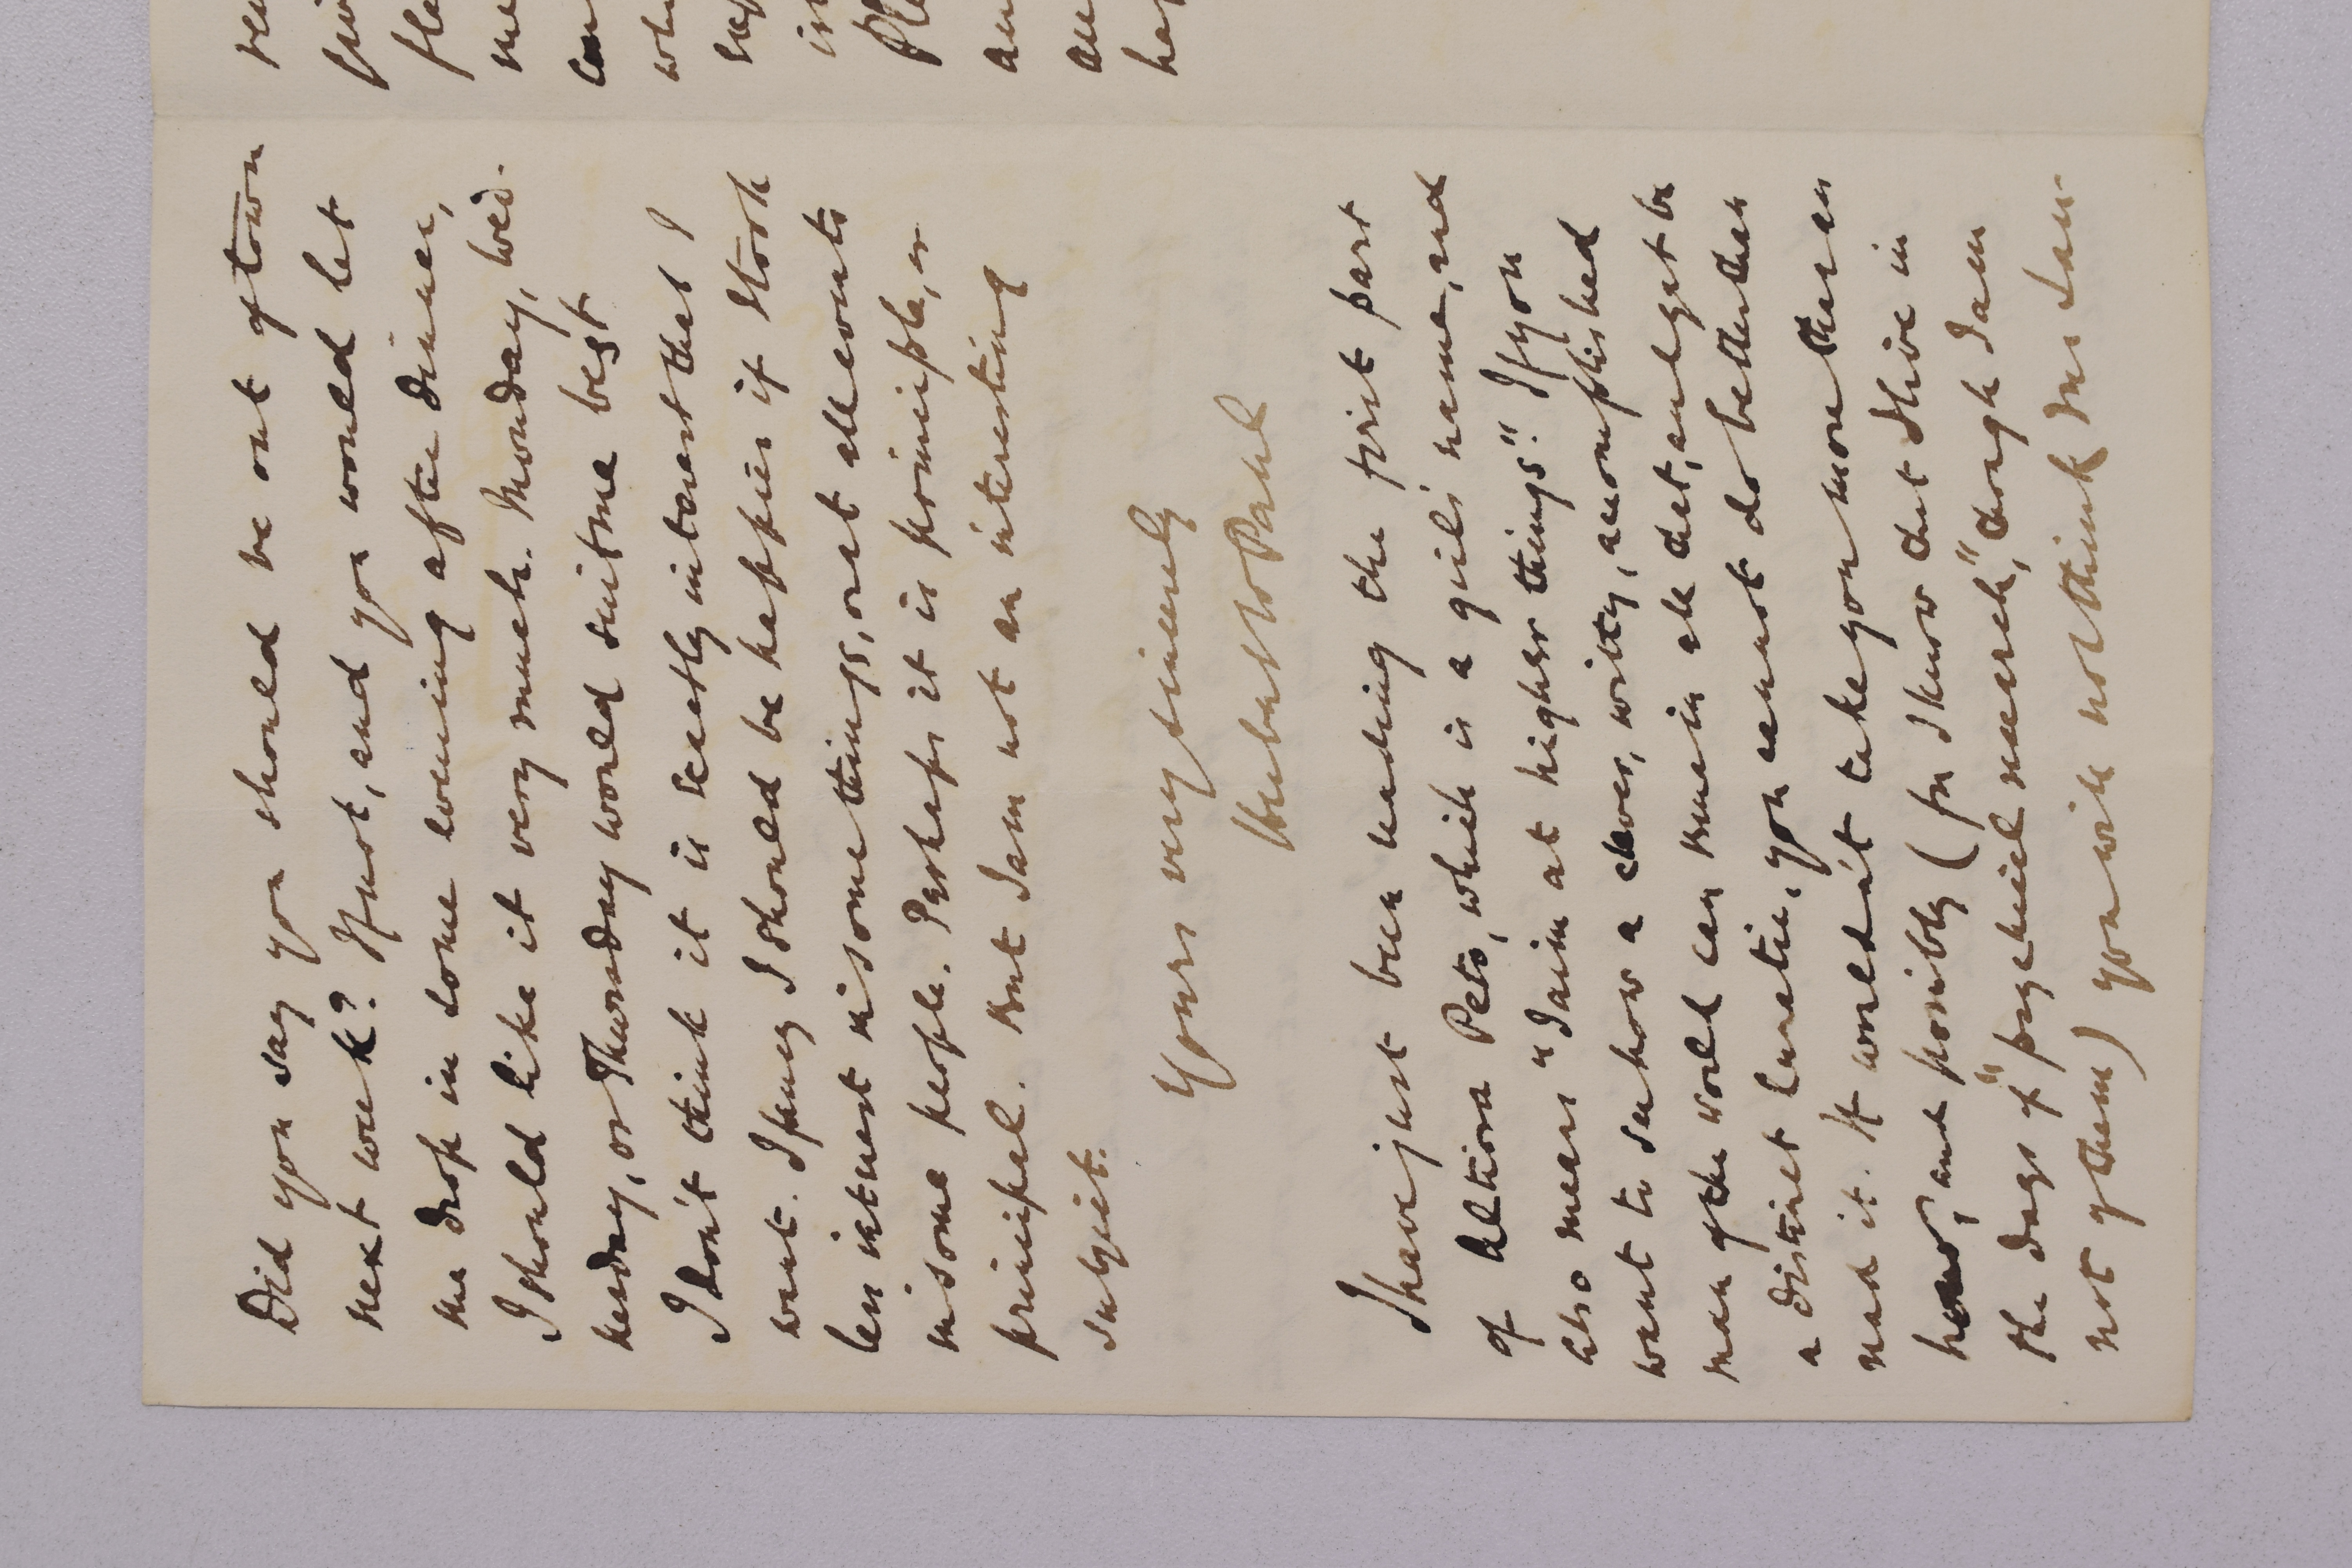 Did you say you should be out of town
next week? If not, and you would let
me drop in some evening after dinner,
I should like it very much. Monday, Wed-
nesday, or Thursday would suit me best
I don't think it is exactly interest that I
want. I fancy I should be happier if I took
less interest in some things, or at all events
in some people. Perhaps it is principle, or
principal. But I am not an interesting
subject.
Yours very sincerely
Herbert P
I have just been reading the first part
of Altiora Peto, which is a girl's name, and
also means "I aim at higher things". If you
want to see how a clever, witty, accomplished
man of the world can remain all that, and yet be
a distinct lunatic, you cannot do better than
read it. It wouldn't take you more than an
hour, and possibly (for I know that I live in
the days of "psychical research," though I am
not of them) you will not think me an